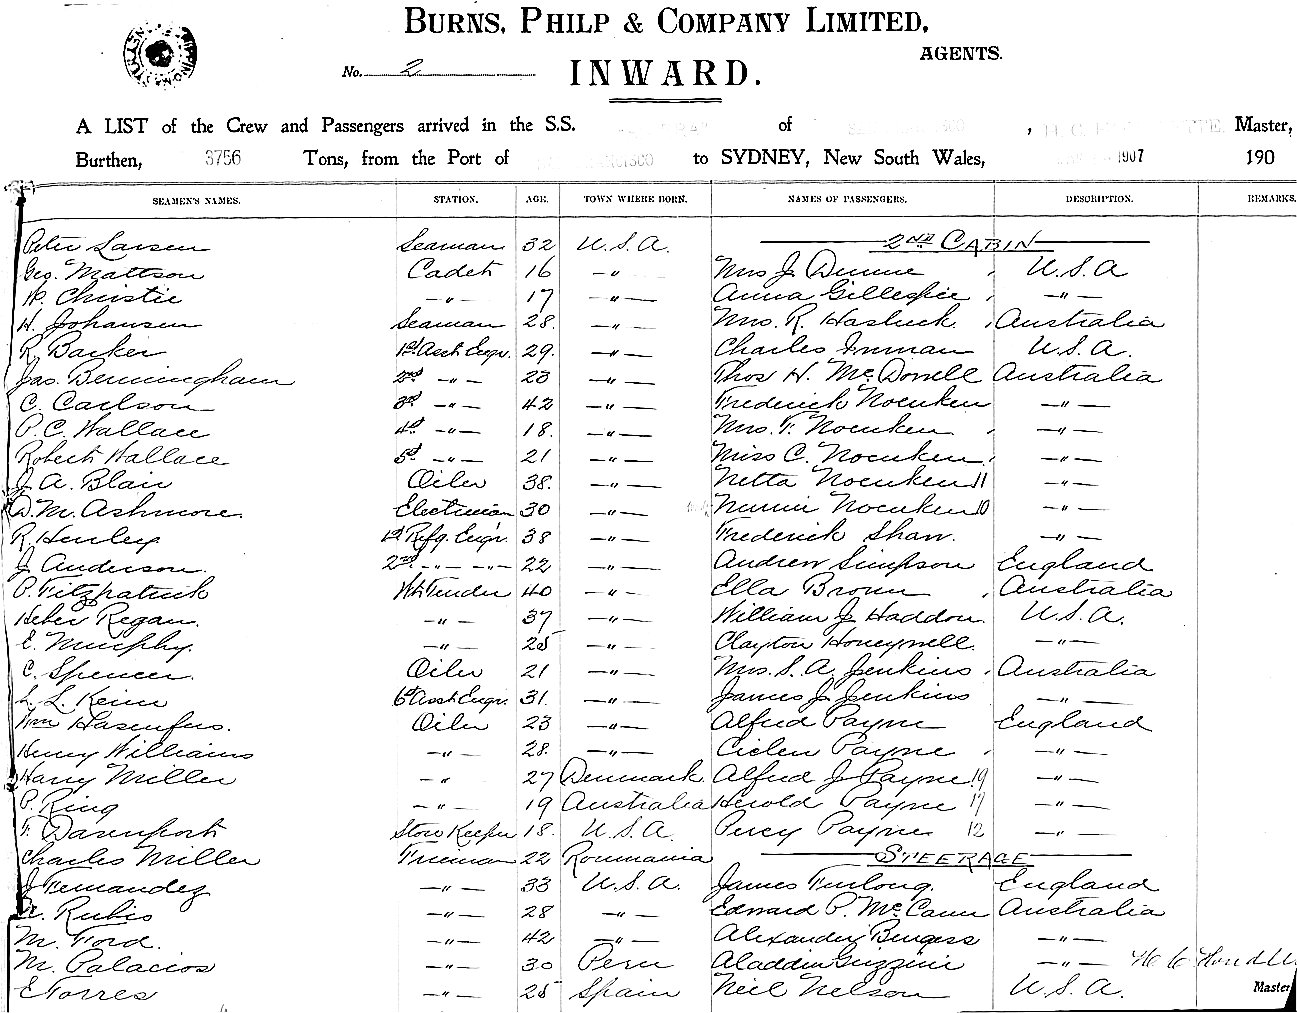 BURNS, PHILP & COMPANY LIMITED,
AGENTS.
No. 2
INWARD.
A LIST of the Crew and Passengers arrived in the S.S. of , Master,
Burthen, 3756 Tons, from the Port of to SYDNEY, New South Wales, 1907 190
SEAMEN'S NAMES. STATION. AGE. TOWN WHERE BORN. NAMES OF PASSENGERS. DESCRIPTION. REMARKS.
Peter Larsen Seaman 32 U.S.A. 2ND CABIN
Geo. Mattson Cadet 16 -"- Mrs J. Dunne U.S.A
H. Christie -"- 17 -"- Anna Gillespie -"-
H. Johansen Seaman 28. -"- Mrs. R. Hasluck Australia
R. Barker 1st Asst Engr. 29. -"- Charles Inman U.S.A.
Jas. Bermingham 2nd -"- 23 -"- Thos H. McDonell Australia
C. Carlson 3rd -"- 42 -"- Frederick Noenken -"-
P.C. Wallace 4th -"- 18. -"- Mrs. F. Noenken -"-
Robert Wallace 5th -"- 21 -"- Miss C. Noenken -"-
J.A. Blair Oiler 38. -"- Netta Noenken 11 -"-
D.M. Ashmore. Electrician 30 -"- Noenken 10 -"-
R. Henley 1st Rfg. Engr. 38 -"- Frederick Shaw. -"-
J. Anderson. 2nd -"- -"- 22 -"- Andrew Simpson England
P. Fitzpatrick Wtr Tender 40 -"- Ella Brown Australia
Heber Regan. -"- 37 -"- William J. Haddon. U.S.A.
E. Murphy. -"- 25 -"- Clayton Honeywell. -"-
C. Spencer. Oiler 21 -"- Mrs. S.A. Jenkins Australia
L.L. Keim 6th Asst Engr. 31. -"- James J. Jenkins -"-
Wm Hasenfus. Oiler 23 -"- Alfred Payne England
Henry Williams -"- 28. -"- Payne -"-
Harry Miller -"- 27 Denmark Alfred J. Payne 19 -"-
P. Ring -"- 19 Australia Herold Payne 17 -"-
F. Davenport Store Keeper 18. U.S.A. Percy Payne 12 -"-
Charles Miller Fireman 22 Roumania STEERAGE
J. Fernandez -"- 33 U.S.A. James Furlong. England
Rubio -"- 28 -"- Edward P. McCann Australia
M. Ford. -"- 42 -"- Alexander Burgess -"-
M. Palacios -"- 30 Peru Aladdin -"-
E Torres -"- 25 Spain Neil Nelson U.S.A. Master